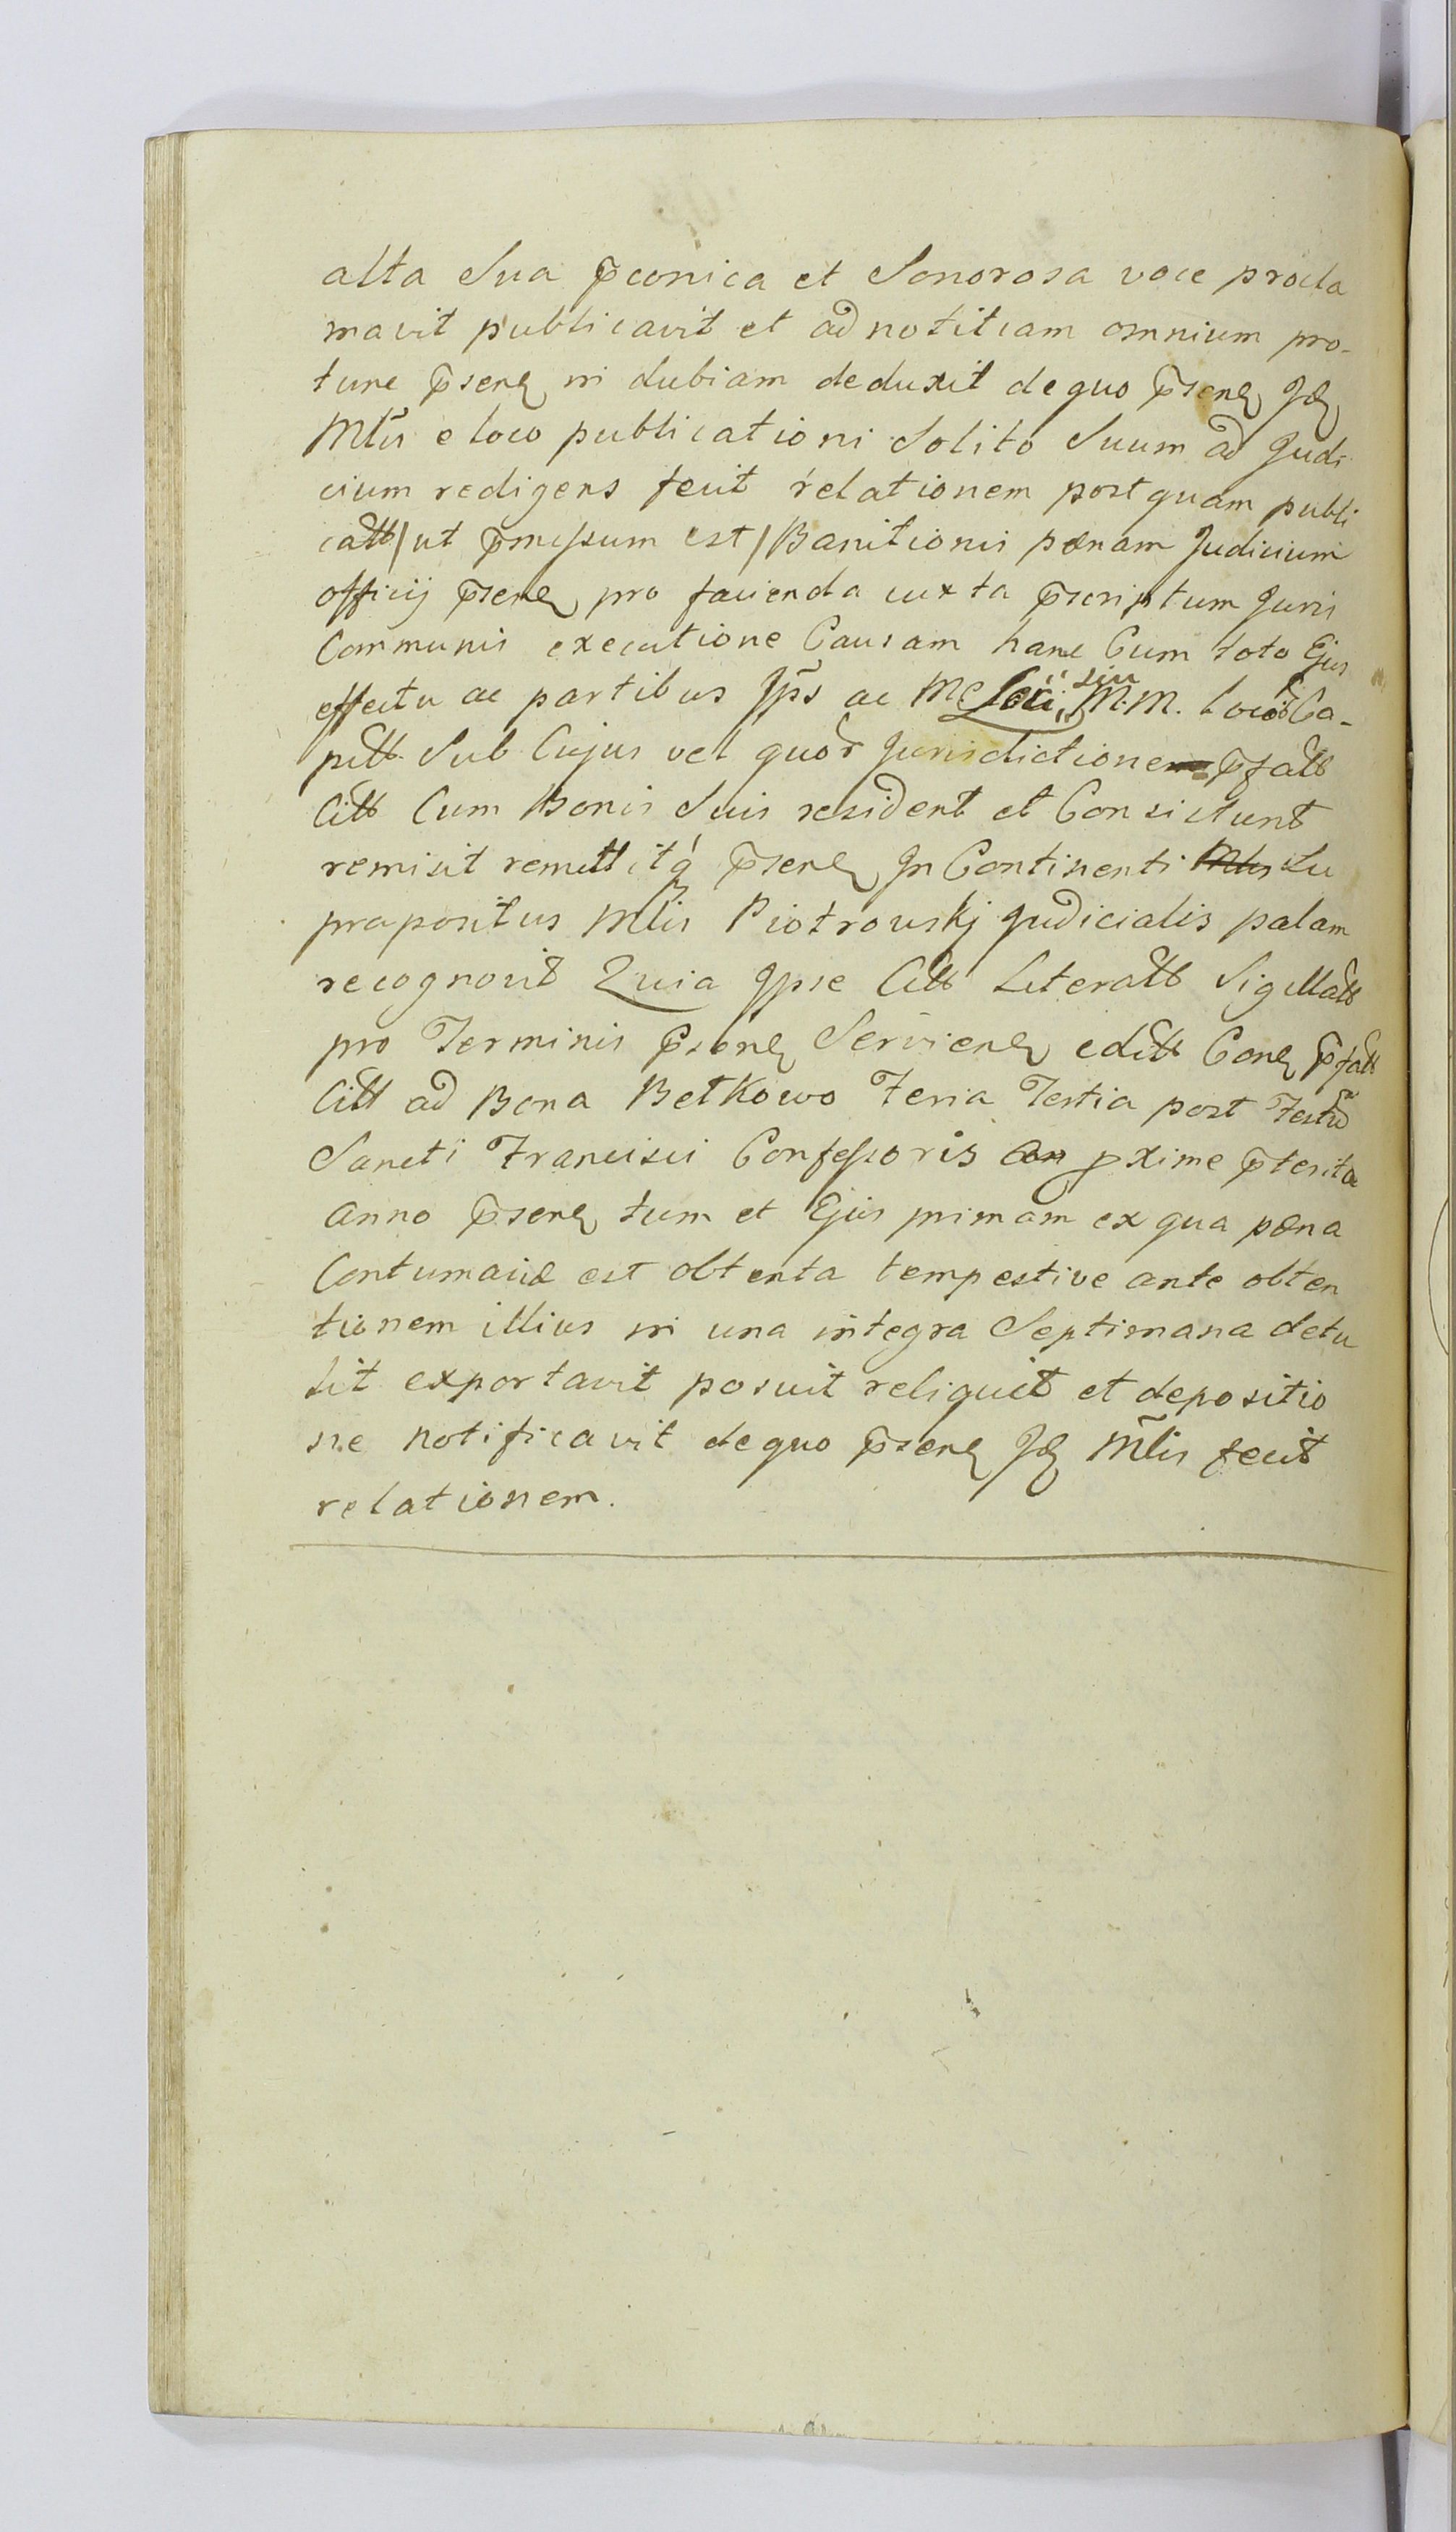 alta Sua p̄conica et Sonorosa voce procla
mavit publicavit et ad notitiam omnium pro-
tunc p̄senȩ in dubiam deduxit de quo p̄senȩ Jdȩ
Mlis e loco publicationi Solito Suum ad Judi
cium redigens fecit relationem post quam publi
catt / ut p̄missum est / Banitionis pænam Judicium
officij p̄senȩ pro facienda iuxta p̄scriptum Juris
Communis executione Causam hanc Cum toto Ejus
effectu ac partibus Jp̄s ac M Loci seu M.M. Locor Ca-
pitt Sub Cujus vel quor Jurisdictione p̄fatt
Citt Cum Bonis Suis resident et Consistunt
remisit remittitq́ p̄senȩ Jn Continenti Mlis Su
prapositus Mlis Piotrowskj Judicialis palam
recognovit Quia Jpse Citt Literatt Sigillatt
pro Terminis p̄senȩ Servienȩ editt Conȩ p̄fatt
Citt ad Bona Betkowo Feria Tertia post Festū
Sancti Francisci Confessoris an pxime p̄terita
Anno p̄senȩ tum et Ejus primam ex qua pæna
Contumaciæ est obtenta tempestive ante obten
tionem illius in una integra Septimana detu
lit exportavit posuit reliquit et depositio
ne notificavit de quo p̄senȩ Jdȩ Mlis fecit
relationem.